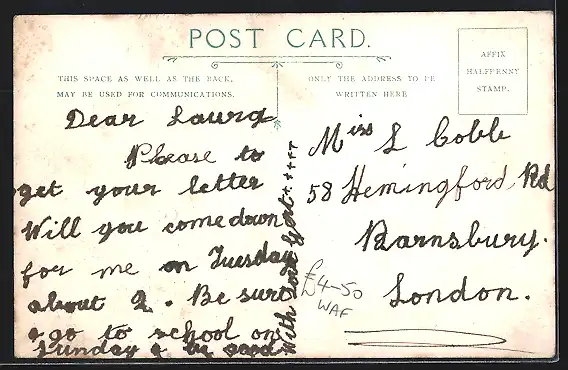 POST CARD.
THIS SPACE AS WELL AS THE BACK,
MAY BE USED FOR COMMUNICATIONS.
ONLY THE ADDRESS TO BE
WRITTEN HERE
AFFIX
HALFPENNY
STAMP.
Dear Laura
Please to
get your letter
Will you come down
for me on Tuesday
about 2. Be sure
& go to school on
Sunday & be good
With love
Miss L Cobb
58 Hemingford Rd
Barnsbury.
London.
£4-50
WAF